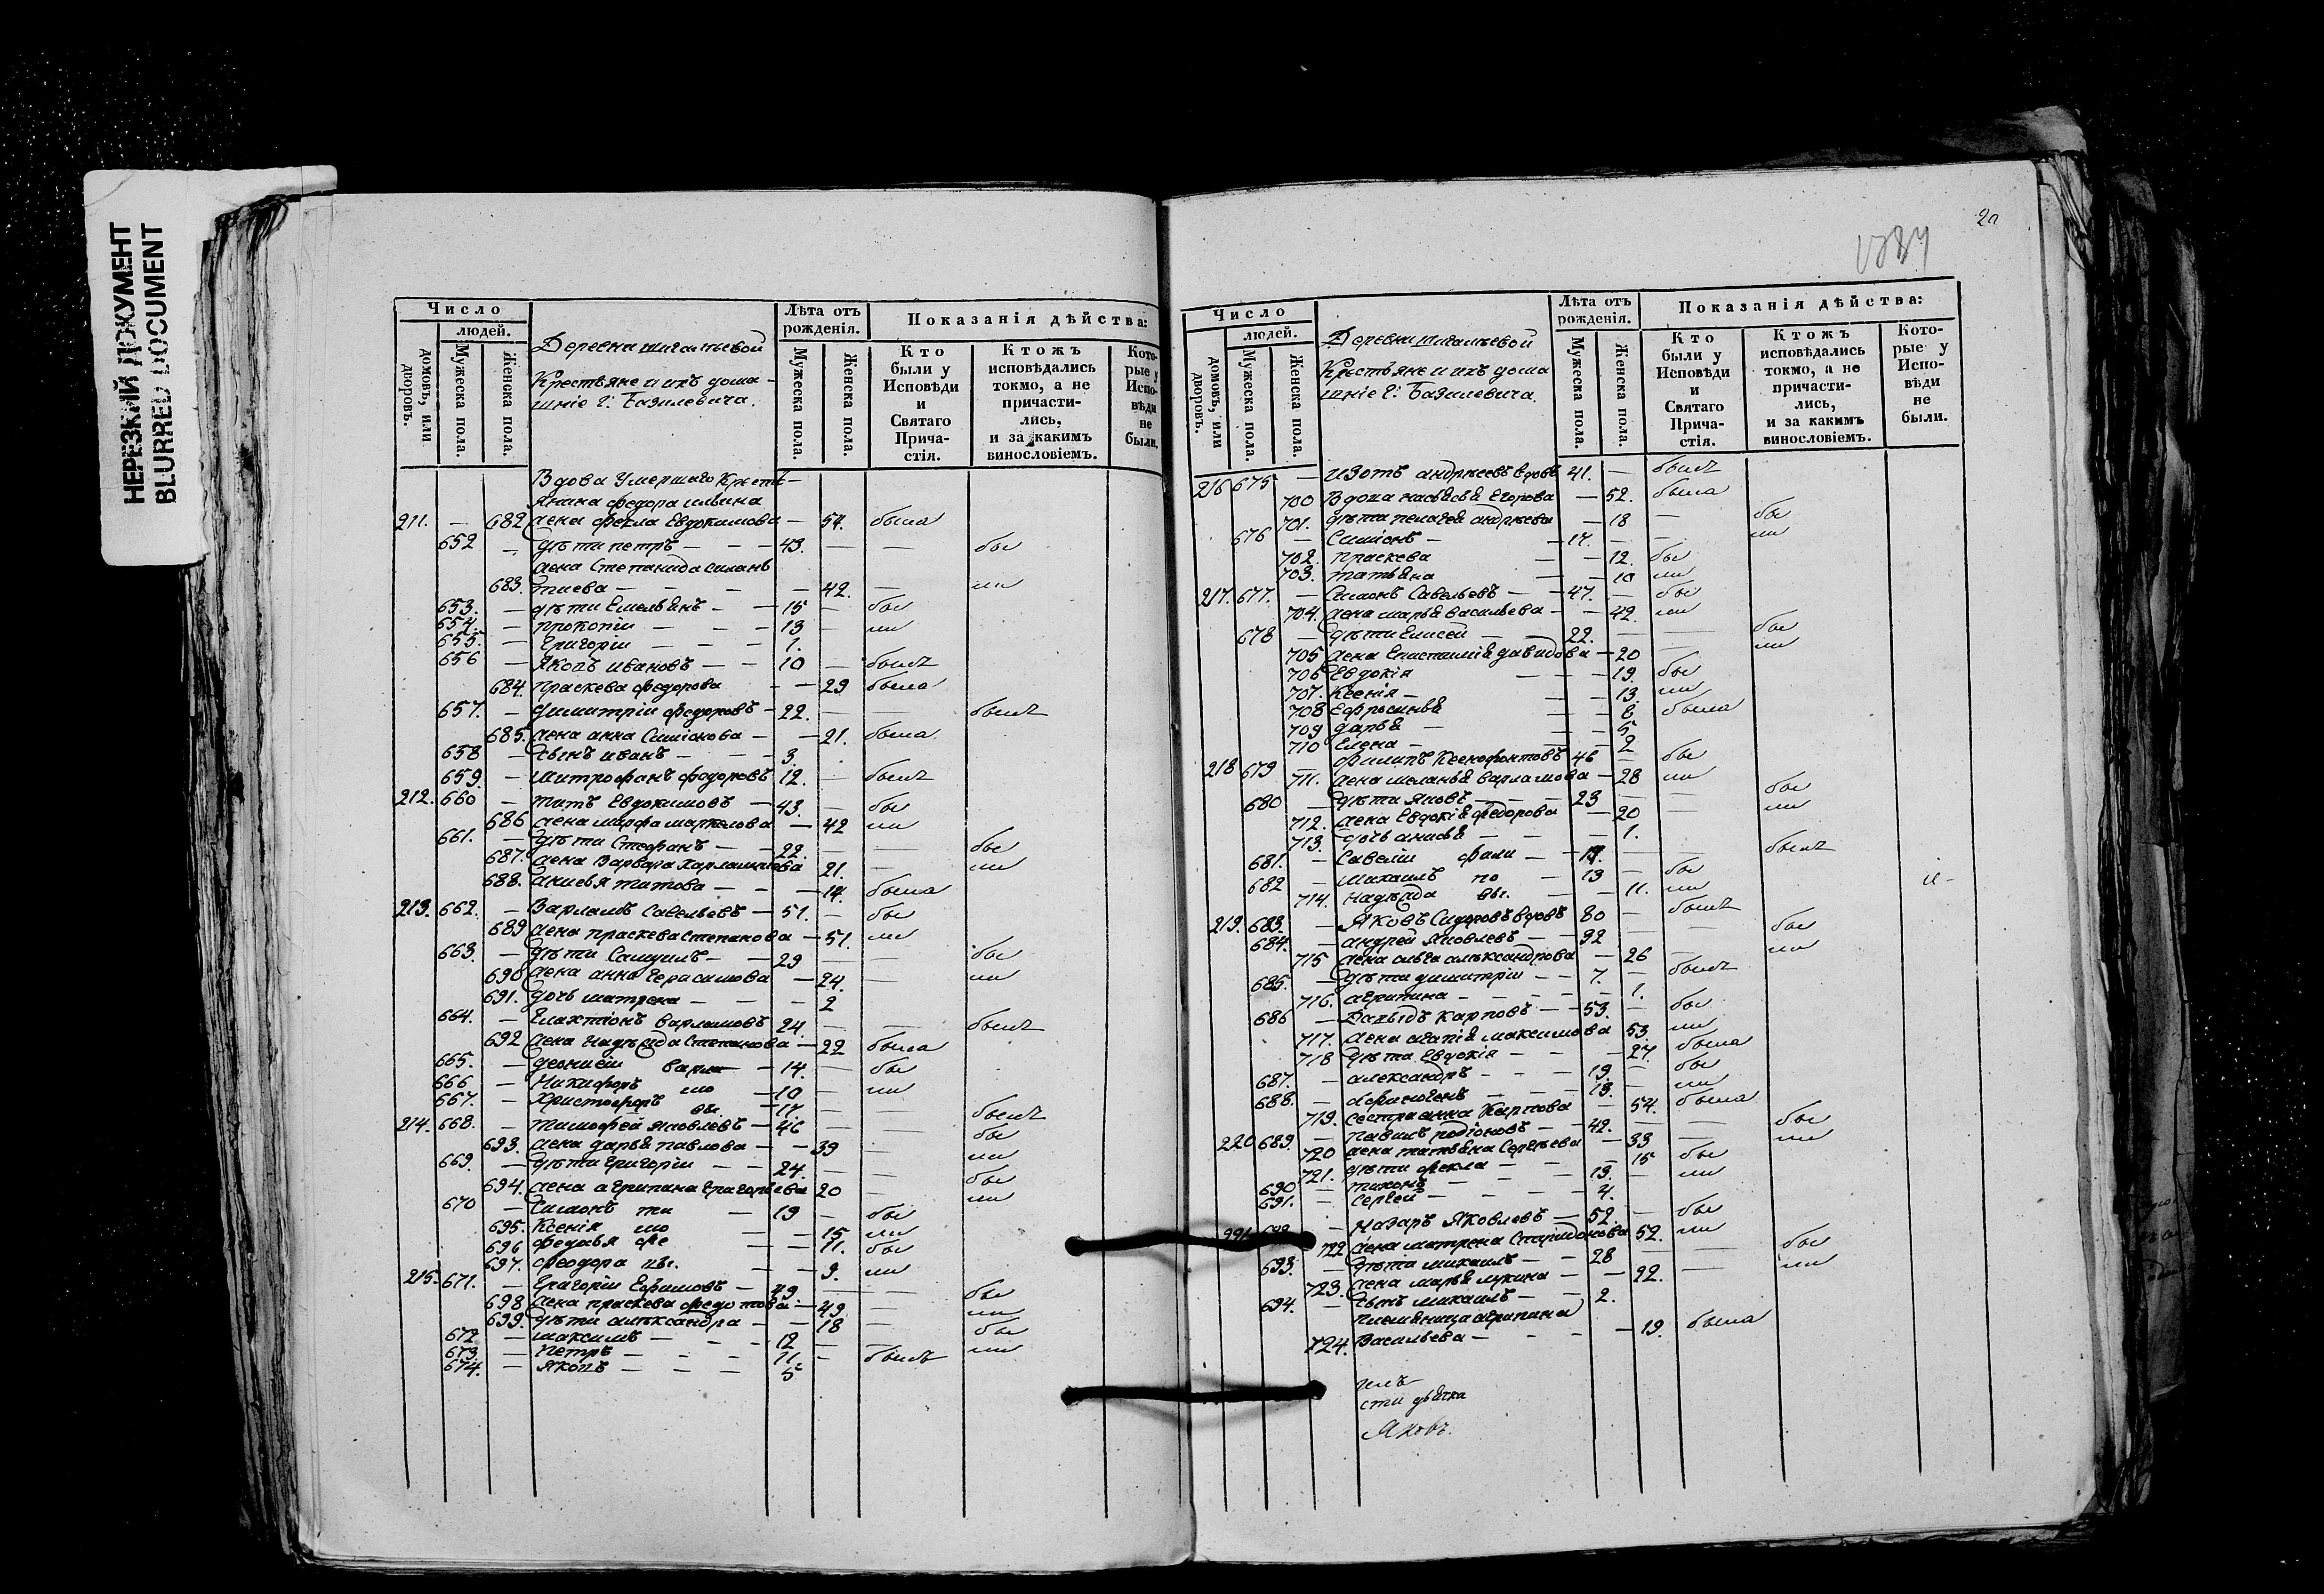 НЕРЕЗКИЙ ДОКУМЕНТ
BLURRED DOCUMENT
Число
людей.
домовъ, или дворовъ.
Мужеска пола.
Женска пола.
Деревни шигалъевой
Крестьяне и ихъ дома-
шніе г: Базилевича.
Лѣта отъ рожденія.
Мужеска пола.
Женска пола.
Показанія дѣйства:
Кто были у Исповѣди и Святаго Причастія.
Ктожъ исповѣдались токмо, а не причастились, и за какимъ винословіемъ.
Которые у Исповѣди не были.
Вдова Умершаго Крестъ-
янина федора ильина
211. — 682 жена фекла Евдокимова — 54. была
652 — дѣти петръ — 43. — — бы
жена Степанида силанъ
683. тиева — — 42. — ли
653. — дѣти Емельянъ — 15 — бы
654. — прокопіи — 13 — ли
655. — Григоріи — 1.
656 — Яковъ ивановъ — 10 — былъ
684. праскева федорова — 29 была
657. — димитріи федоровъ — 22. — — былъ
685. жена анна Симіонова — 21. была
658 — сынъ иванъ — 3.
659. — митрофанъ федоровъ 12. — былъ
212. 660 — титъ Евдокимовъ — 43. — бы
686 жена марфа маркелова — 42 ли
661. — дѣти Стефанъ — 22. — — бы
687. жена Варвара Харлампиева 21. — ли
688. анисья титова — 14. была
213. 662. — Варламъ Савельевъ — 51. — бы
689 жена праскева степанова — 51. ли
663. — дѣти Самуилъ — 29 — — бы
690 жена анна герасимова — 24. — ли
691. дочь матрена — 2
664. — Галактіонъ варламовъ 24. — — былъ
692 жена надѣжда Степанова — 22 была
665. — деонисіи варла — 14. — бы
666 — Никифоръ мо — 10 — ли
667. — Христофоръ вы. — 17. — — былъ
214. 668. — тимофей яковлевъ — 46 — — бы
693. жена дарья павлова — 39 — ли
669. — дѣти григоріи — 24. — — бы
694. жена агрипина григорьева 20 — ли
670 — Симонъ ти — 19 — бы
695. Ксенія мо — 15 ли
696 федосья фе — 11. бы
697. феодора вы. — 9. ли
215. 671. — Григоріи Ефимовъ — 49 — — бы
698 жена праскева федотова — 49. — ли
699. дѣти александра — 18 — бы
672 — максимъ — 12 — — ли
673. — Петръ — 11 — былъ
674. — яковъ — 5
20
Число
людей.
домовъ, или дворовъ.
Мужеска пола.
Женска пола.
Деревни шигалъевой
Крестьяне и ихъ дома
шніе г: Базилевича.
Лѣта отъ рожденія.
Мужеска пола.
Женска пола.
Показанія дѣйства:
Кто были у Исповѣди и Святаго Причастія.
Ктожъ исповѣдались токмо, а не причастились, и за какимъ винословіемъ.
Которые у Исповѣди не были.
216 675 — изотъ андрѣевъ вдовъ 41. — былъ
700 Вдова Егорова — 52. была
701. дѣти пелагея андрѣева — 18 — бы
676 — Симіонъ — 17. — — ли
702. праскева — 12. бы
703. татьяна — 10 ли
217. 677. — Симонъ Савельевъ — 47. — бы
704. жена марья васильева — 42. ли
678 — дѣти Елисей — 22. — — бы
705 жена Епистимія давидова — 20 — ли
706 Евдокія — 19. бы
707. Ксенія — 13. ли
708 Ефросинья — 8 была
709 дарья — 5
710 Елена — 2
218 679 — филипъ Ксенофонтовъ 46 — бы
711. жена меланья варламова — 28 ли
680 — дѣти яковъ — 23 — — бы
712. жена Евдокія федорова — 20 — ли
713. дочь анисья — 1.
681. — Савеліи фили — 17. — — былъ
682 — Михаилъ по — 13 — бы
714. надѣжда вы. — 11. ли
219. 683. — Яковъ Сидоровъ вдовъ 80 — былъ
684. — андрей яковлевъ — 32 — — бы
715 жена олга александрова — 26 — ли
685. — дѣти димитріи — 7. — былъ
716. агрипина — 1.
686 — Давыдъ Карповъ — 53. — бы
717. жена агапія максимова 53. ли
718 дѣти Евдокія — 27. была
687. — александръ — 19. — бы
688. — афиногенъ — 13. — ли
719. сестра анна Карпова — 54. была
220 689. — павилъ родіоновъ — 42. — — бы
720 жена татьяна Сергѣева — 33 — ли
721. дѣти фекла — 15 бы
690 — тихонъ — 13. — ли
691. — Сергей — 4.
— назаръ Яковлевъ — 52. — бы
722 жена матрена Спиридонова 52. ли
693. — дѣти михаилъ — 28 — — бы
723. жена марья лукина — 22. — ли
694. — сынъ михаилъ — 2.
племянница агрипина
724. Васильева — 19. была
Яковъ.